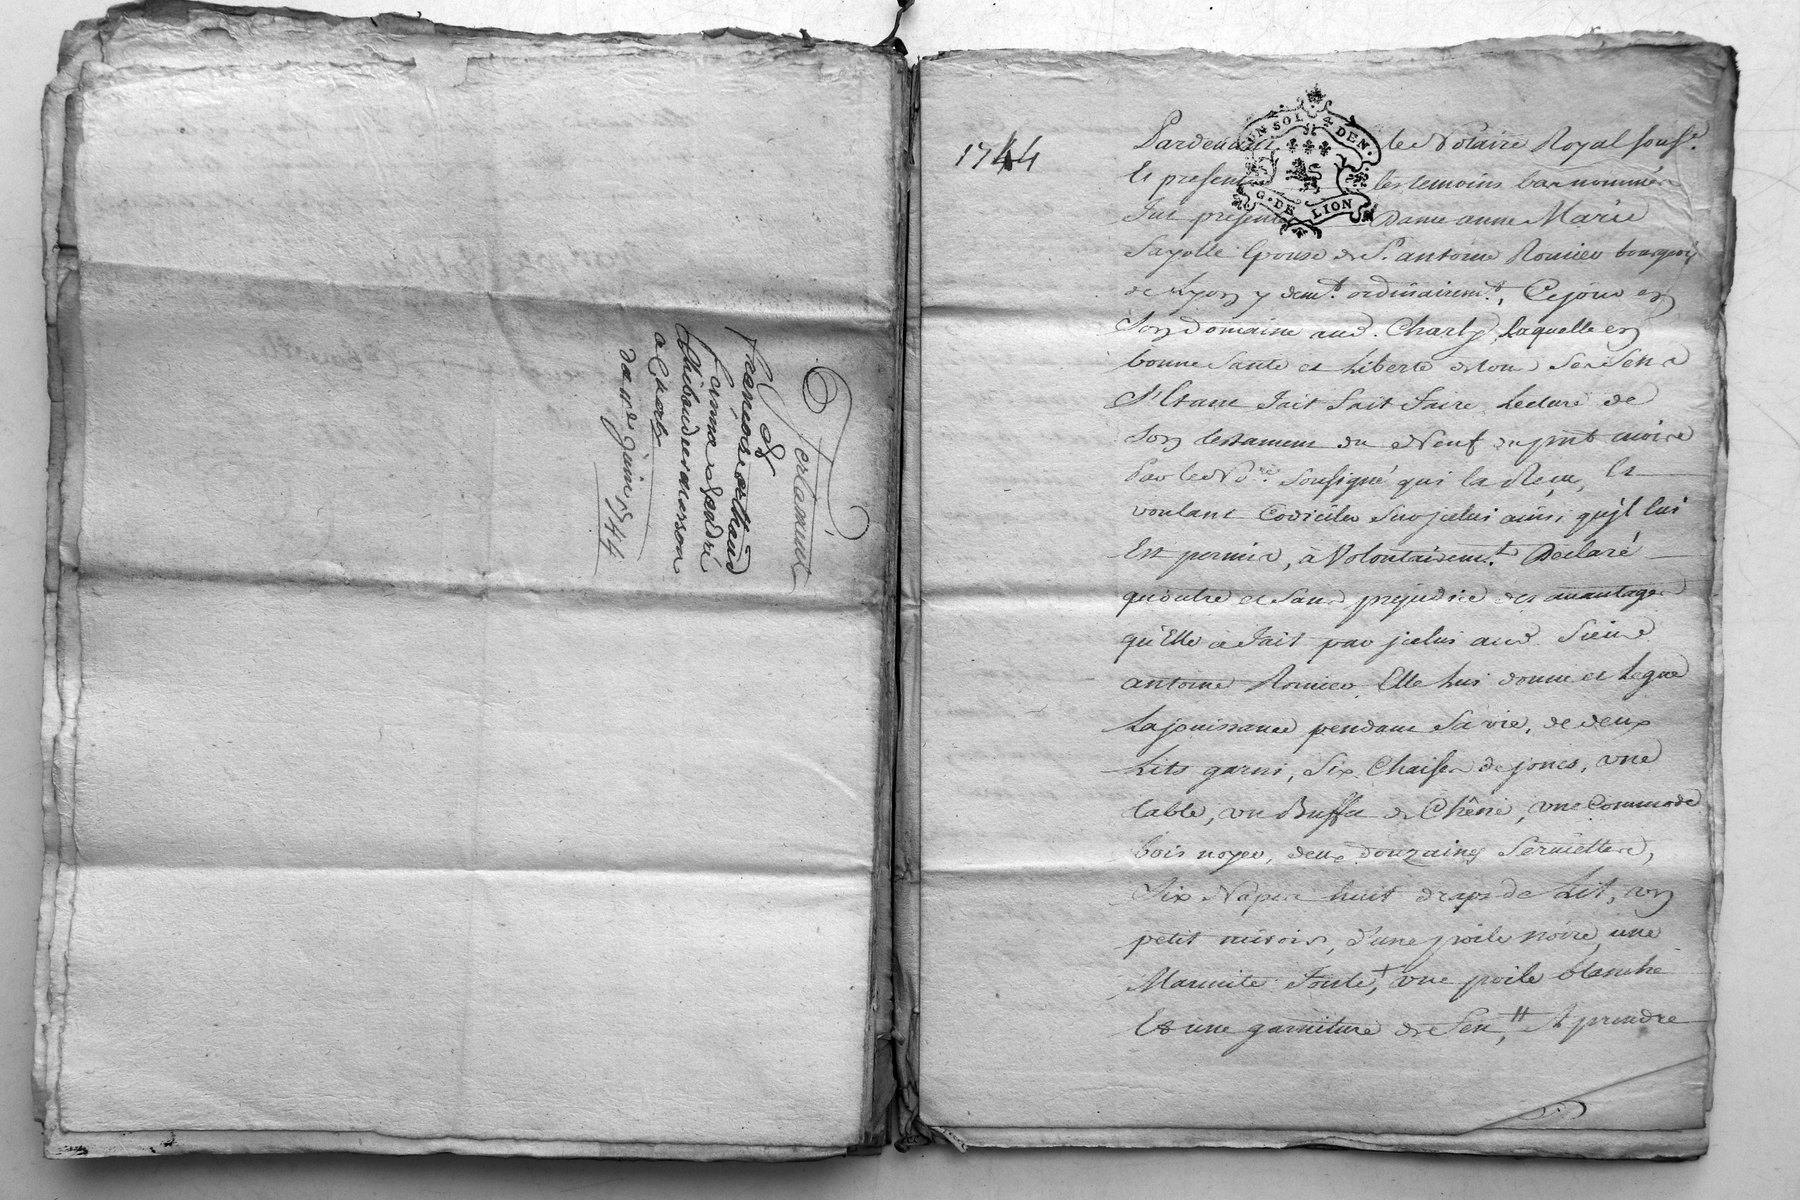 Testament
de
françois arthaud
femme andré
Thibaudier maison
a Charly
du 11e juin 1744
1744
UN SOL 4 DEN.
G. DE LION
Pardevant le Notaire Royal sousé.
Et presents les temoins bas nommés
fut presente Dame anne Marie
Fayolle Epouse de Sr. antoine Romieu bourgeois
de Lyon y demt. ordinairemt., Ce jour en
son domaine aud. Charly, laquelle en
bonne Santé et Liberté de tous Ses Sens
S'Etant fait fait faire Lecture de
son testament du Neuf du pnt mois
Par le No.re Soussigné qui la Reçu, Et
voulant Codiciler Sur jcelui ainsi qu'jl lui
Est permis, à Volontairemt. Declaré
qu'outre et Sans prejudice des avantages
qu'Elle a fait par jcelui aud. Sieur
antoine Romieu, Elle Lui donne et Legue
La jouissance pendant Sa vie, de deux
Lits garni, Six Chaises de joncs, une
table, un Buffet de Chêne, une Commode
bois noyer, deux douzaines Serviettes,
Six Napes huit draps de Lit, un
petit miroir, d'une poile noire, une
Marmite fonte,+ une poile blanche
Et une garniture de feu,# A prendre